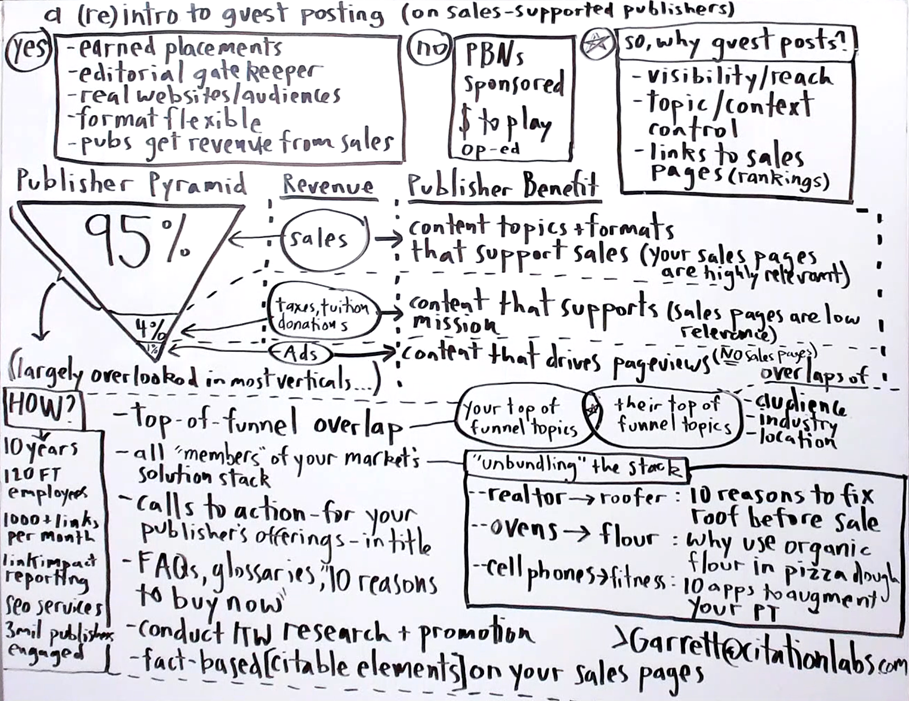 a (re)intro to guest posting (on sales-supported publishers)
yes
-earned placements
-editorial gatekeeper
-real websites/audiences
-format flexible
-pubs get revenue from sales
no
PBNs
Sponsored
$ to play
op-ed
so, why guest posts?
-visibility/reach
-topic/context
control
-links to sales
pages (rankings)
Publisher Pyramid
Revenue
Publisher Benefit
95%
sales
content topics + formats
that support sales (your sales pages
are highly relevant)
4%
taxes, tuition
donations
content that supports (sales pages are low
mission relevance)
1%
Ads
content that drives pageviews (NO sales pages)
(largely overlooked in most verticals...)
HOW?
10 years
120 FT
employees
1000+ links
per month
link impact
reporting
seo services
3mil publishers
engaged
-top-of-funnel overlap
your top of
funnel topics
their top of
funnel topics
overlaps of
-audience
-industry
-location
-all "members" of your market's
solution stack
"unbundling" the stack
--realtor→roofer: 10 reasons to fix
roof before sale
--ovens→flour: why use organic
flour in pizza dough
--cell phones→fitness: 10 apps to augment
your PT
-calls to action-for your
publisher's offerings-in title
-FAQs, glossaries, "10 reasons
to buy now"
-conduct ITW research + promotion
-fact-based [citable elements] on your sales pages
>Garrett@citationlabs.com